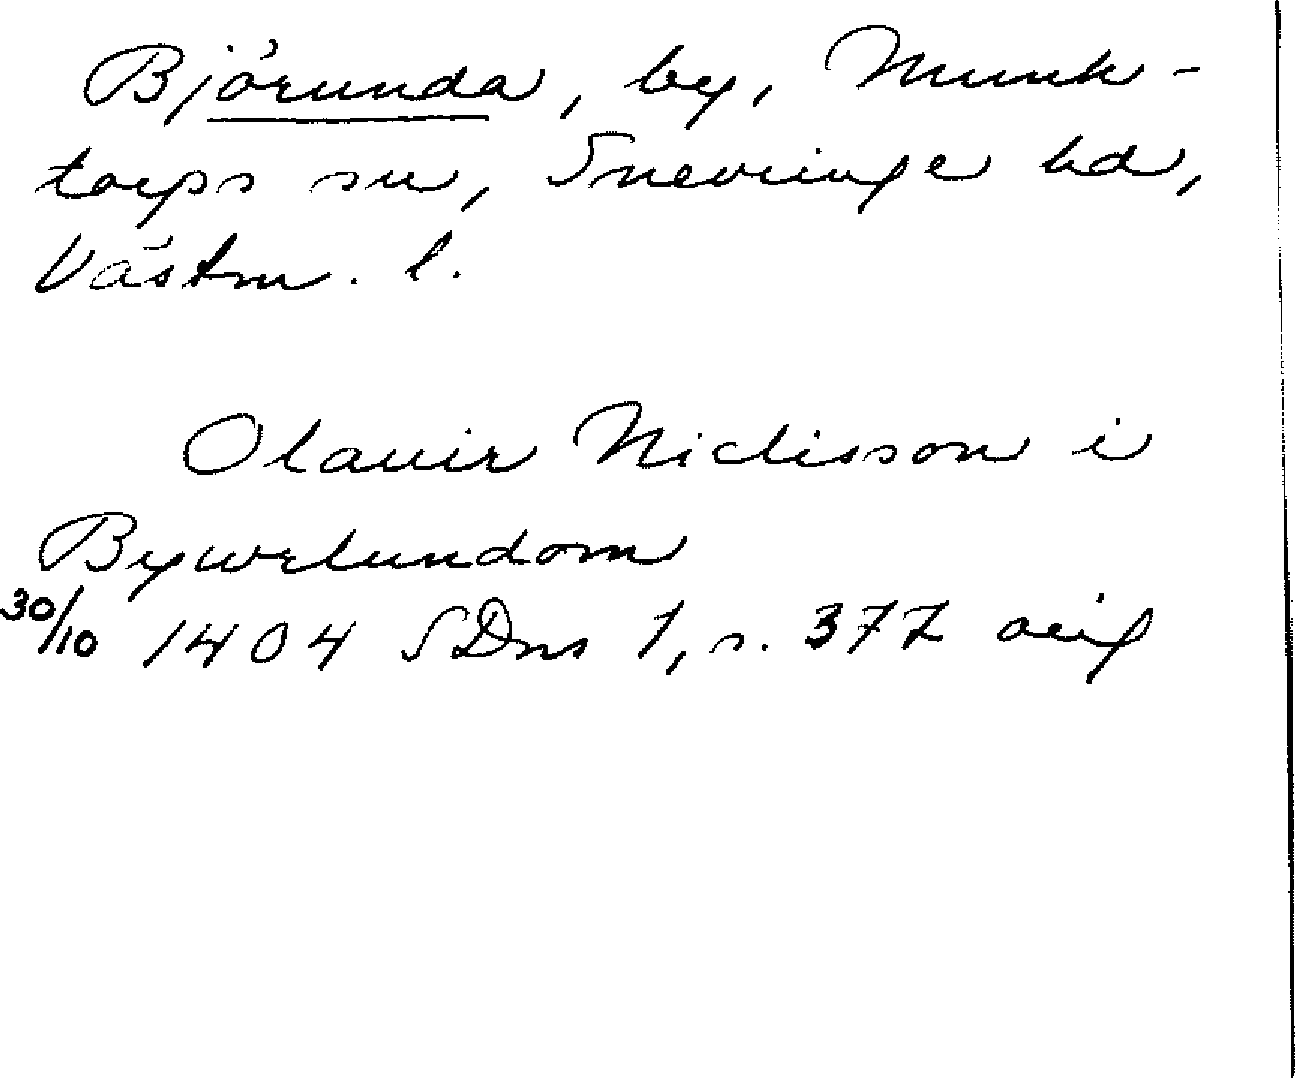 Björunda, by, Munk-
torps sn, Snevringe hd,
Västm. l.
Olauir Niclisson i
Bywrlundom
30/10 1404 SDns 1, s. 377 orig